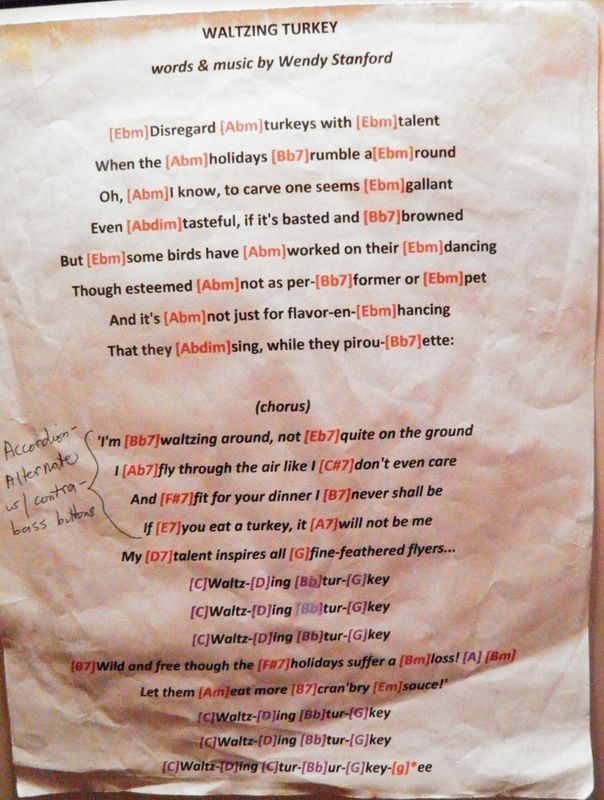 WALTZING TURKEY
words & music by Wendy Stanford
[Ebm]Disregard [Abm]turkeys with [Ebm]talent
When the [Abm]holidays [Bb7]rumble a[Ebm]round
Oh, [Abm]I know, to carve one seems [Ebm]gallant
Even [Abdim]tasteful, if it's basted and [Bb7]browned
But [Ebm]some birds have [Abm]worked on their [Ebm]dancing
Though esteemed [Abm]not as per-[Bb7]former or [Ebm]pet
And it's [Abm]not just for flavor-en-[Ebm]hancing
That they [Abdim]sing, while they pirou-[Bb7]ette:
(chorus)
'I'm [Bb7]waltzing around, not [Eb7]quite on the ground
I [Ab7]fly through the air like I [C#7]don't even care
And [F#7]fit for your dinner I [B7]never shall be
If [E7]you eat a turkey, it [A7]will not be me
Accordion-
Alternate
w/ contra-
bass buttons
My [D7]talent inspires all [G]fine-feathered flyers...
[C]Waltz-[D]ing [Bb]tur-[G]key
[C]Waltz-[D]ing [Bb]tur-[G]key
[C]Waltz-[D]ing [Bb]tur-[G]key
[B7]Wild and free though the [F#7]holidays suffer a [Bm]loss! [A] [Bm]
Let them [Am]eat more [B7]cran'bry [Em]sauce!'
[C]Waltz-[D]ing [Bb]tur-[G]key
[C]Waltz-[D]ing [Bb]tur-[G]key
[C]Waltz-[D]ing [C]tur-[Bb]ur-[G]key-[g]*ee